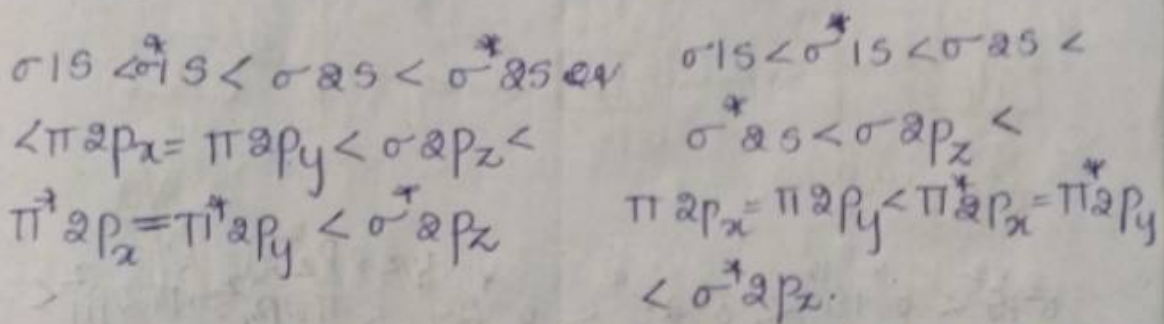 σ1s < σ*1s < σ2s < σ*2s
< π2pₓ = π2p_y < σ2p_z <
π*2pₓ = π*2p_y < σ*2p_z
σ1s < σ*1s < σ2s <
σ*2s < σ2p_z <
π2pₓ = π2p_y < π*2pₓ = π*2p_y
< σ*2p_z.